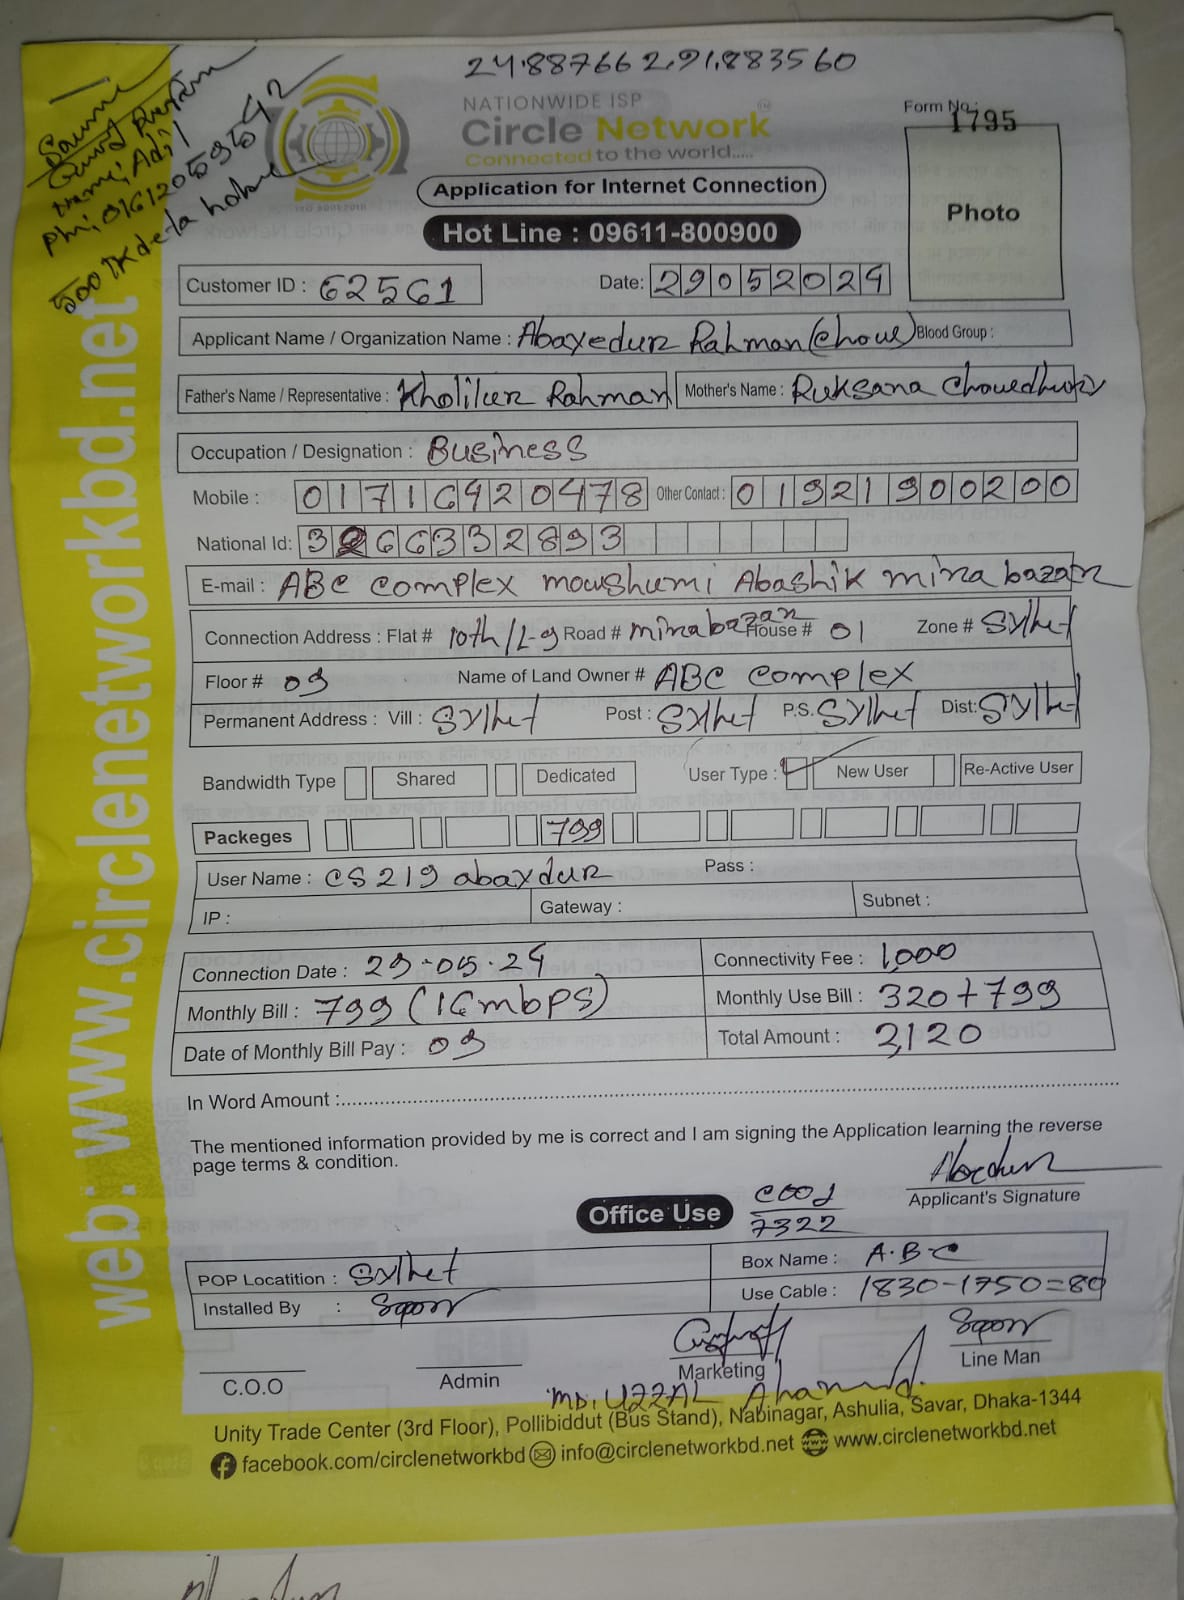 24.887662,91,883560
Saume
Name; Adil
500 TK de la hobe
NATIONWIDE ISP
Circle Network
Connected to the world.....
Form No.: 1795
Application for Internet Connection
Photo
Hot Line : 09611-800900
Customer ID : 62561 Date: 29052024
Applicant Name / Organization Name : Abaxedur Rahman (chow) Blood Group :
Father's Name / Representative : Kholilur Rahman Mother's Name : Ruksana Chowedhury
Occupation / Designation : Business
Mobile : 01716920478 Other Contact : 01921900200
National Id: 3266332893
E-mail : ABC complex moushumi Abashik mina bazar
Connection Address : Flat # 10th/L-9 Road # minabazar House # 01 Zone # Sylhet
Floor # 09 Name of Land Owner # ABC complex
Permanent Address : Vill : Sylhet Post : Sylhet P.S. Sylhet Dist: Sylhet
Bandwidth Type Shared Dedicated User Type : New User Re-Active User
Packeges 799
User Name : CS219 abaxdur Pass :
IP : Gateway : Subnet :
Connection Date : 29-05.24 Connectivity Fee : 1,000
Monthly Bill : 799 (16mbps) Monthly Use Bill : 320+799
Date of Monthly Bill Pay : 09 Total Amount : 2,120
In Word Amount :
The mentioned information provided by me is correct and I am signing the Application learning the reverse
page terms & condition.
Applicant's Signature
Office Use
7322
POP Locatition : Sylhet Box Name : A.B.C
Installed By : Use Cable : 1830-1750=80
C.O.O Admin Marketing Line Man
MD. UZZAL Ahammed.
Unity Trade Center (3rd Floor), Pollibiddut (Bus Stand), Nabinagar, Ashulia, Savar, Dhaka-1344
facebook.com/circlenetworkbd info@circlenetworkbd.net www.circlenetworkbd.net
web: www.circlenetworkbd.net